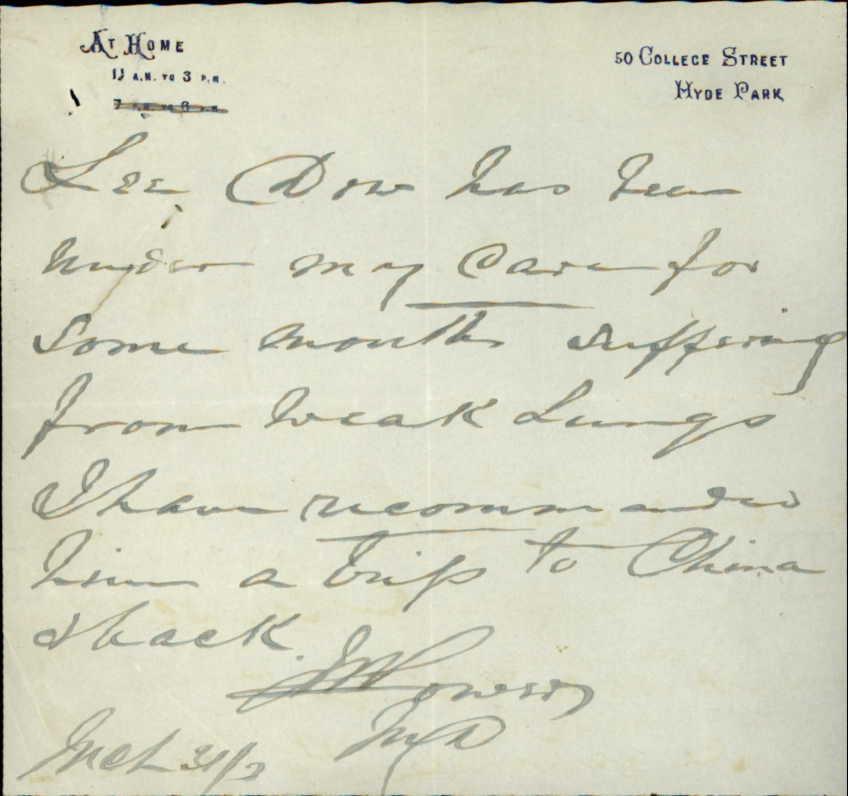 At Home
11 A.M. to 3 P.M.
50 College Street
Hyde Park
Lee Dow has been
under my care for
some months suffering
from weak Lungs
I have recommended
him a trip to China
& back
M D
Mch 31/